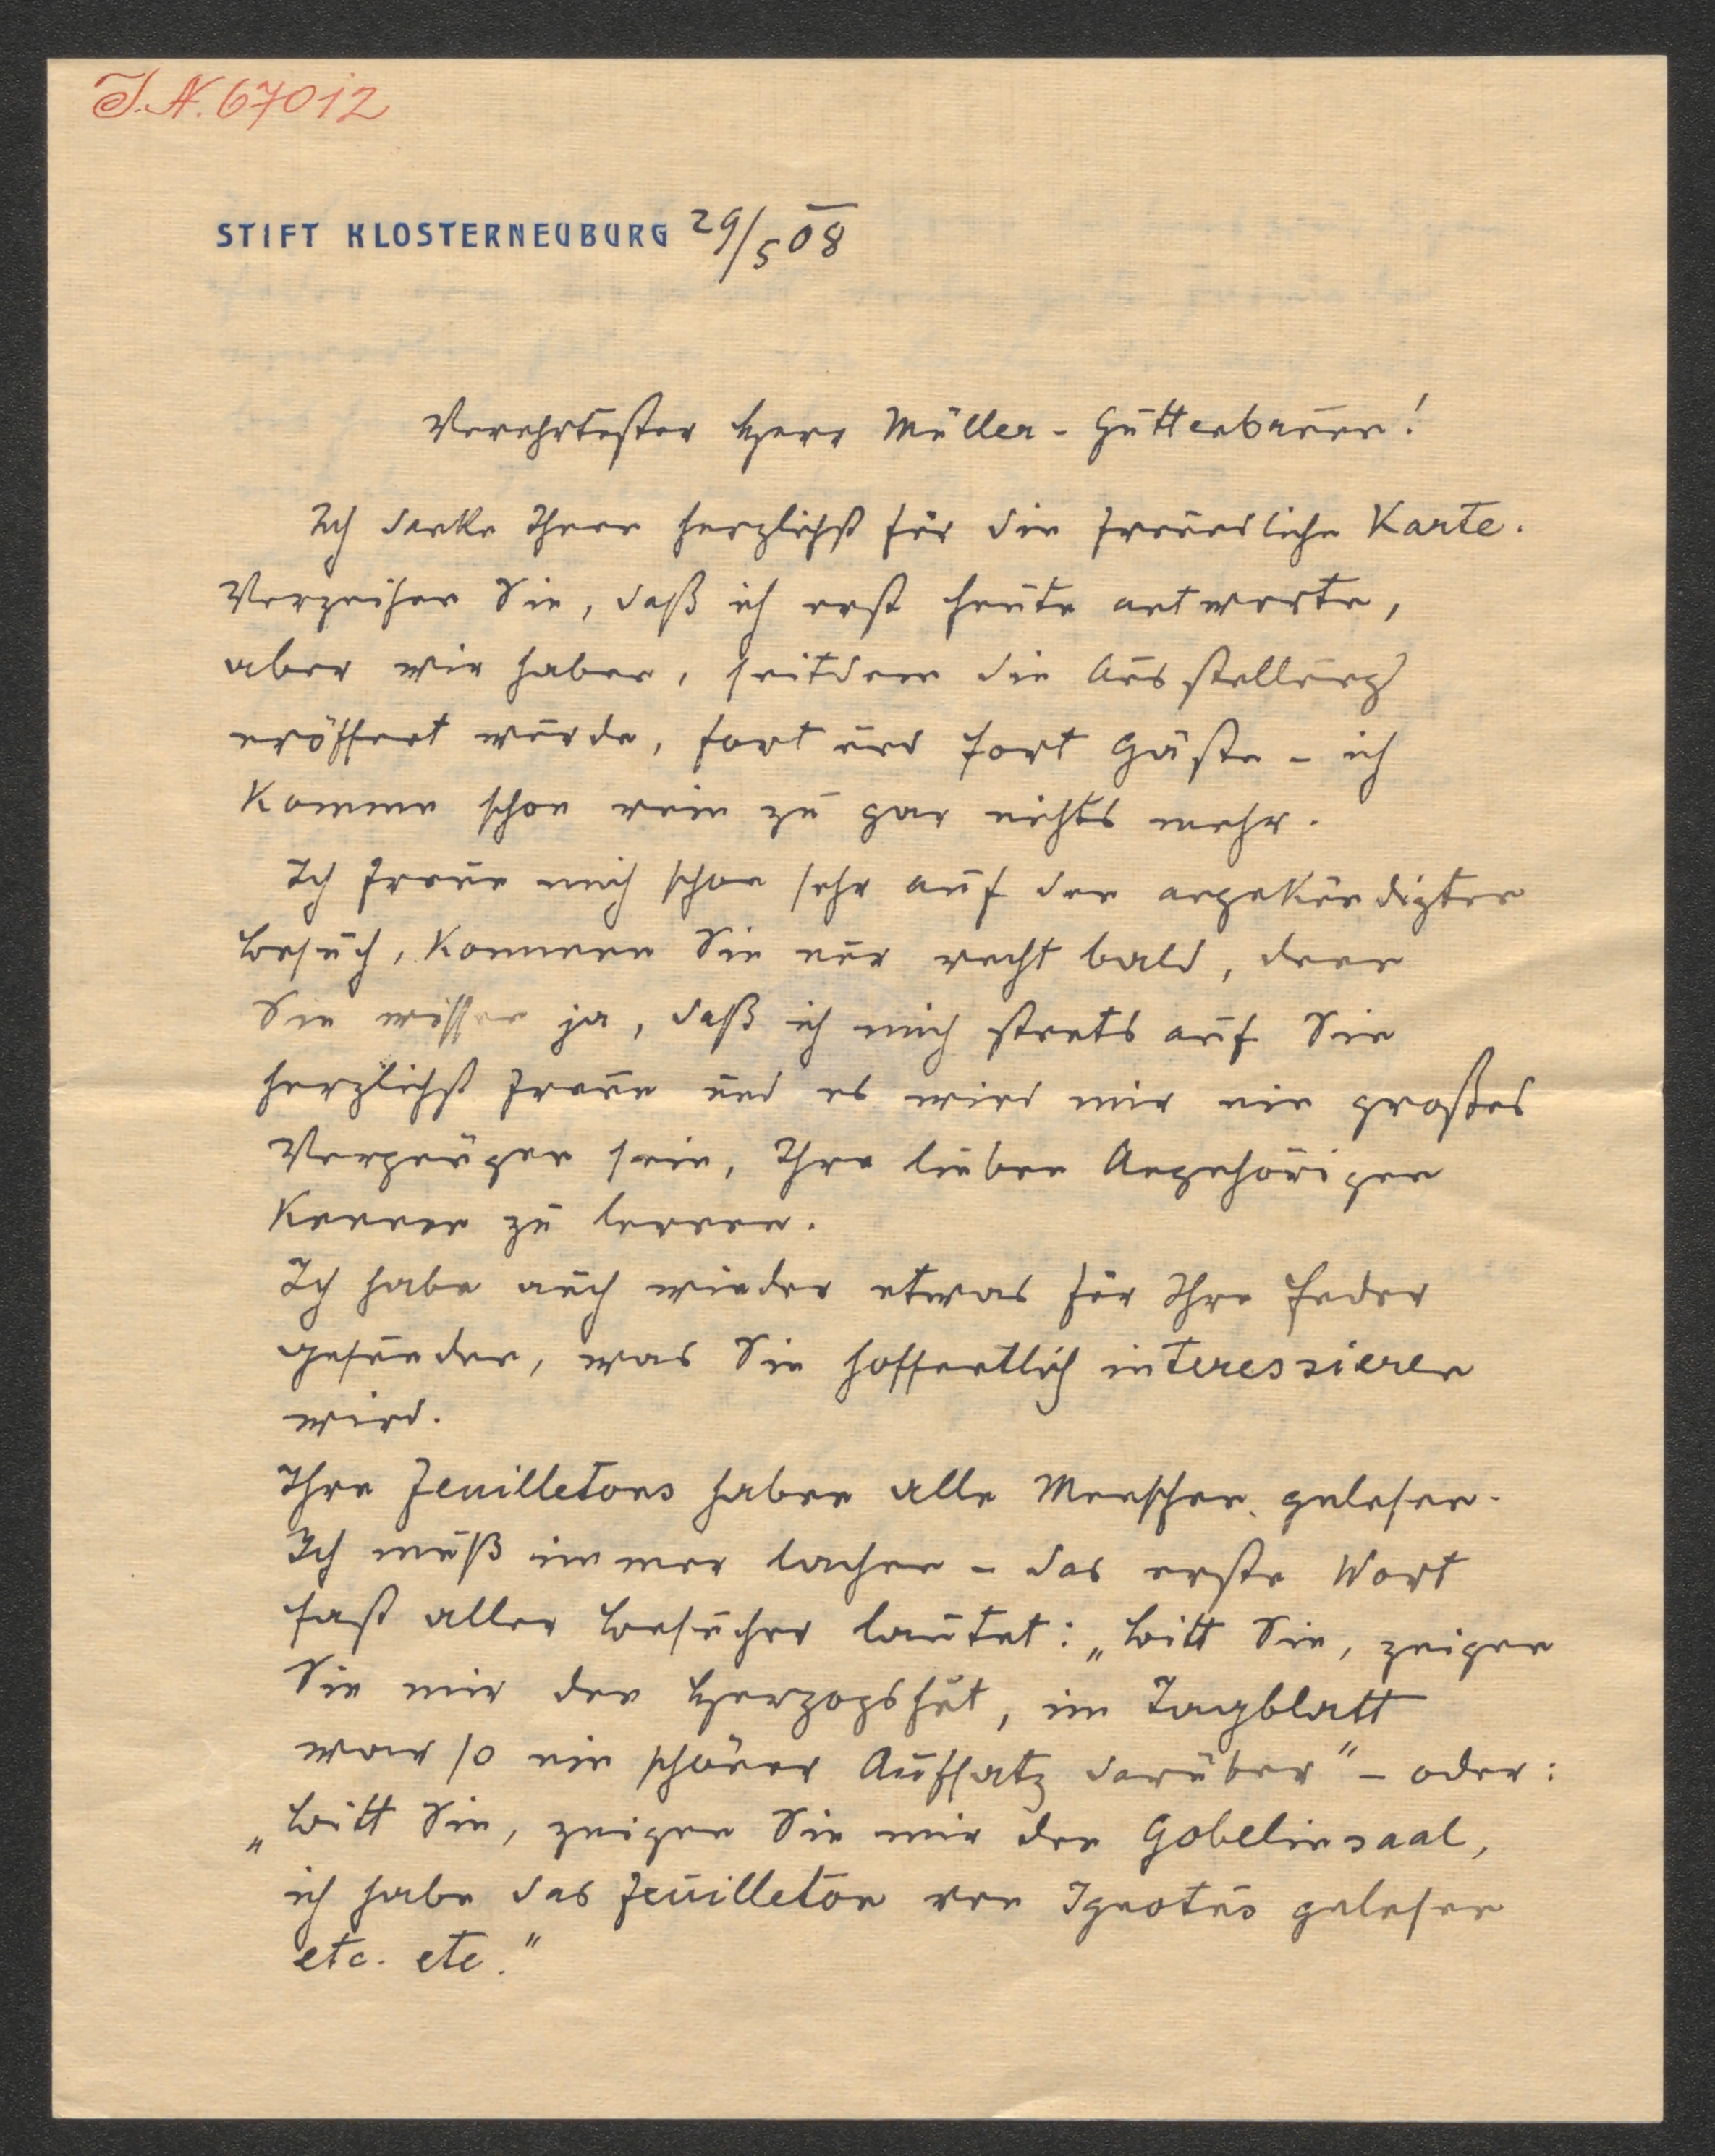 I.N. 67012
STIFT KLOSTERNEUBURG 29/5 08
Verehrtester Herr Müller-Guttenbrunn!
Ich danke Ihnen herzlichst für die freundliche Karte.
Verzeihen Sie, daß ich erst heute antworte,
aber wir haben, seitdem die Ausstellung
eröffnet wurde, fort und fort Gäste – ich
komme schon rein zu gar nichts mehr.
Ich freue mich schon sehr auf den angekündigten
Besuch, kommen Sie nur recht bald, denn
Sie wissen ja, daß ich mich stets auf Sie
herzlichst freue und es wird mir ein großes
Vergnügen sein, Ihre lieben Angehörigen
kennen zu lernen.
Ich habe auch wieder etwas für Ihre Feder
gefunden, was Sie hoffentlich interessieren
wird.
Ihre Feuilletons haben alle Menschen gelesen.
Ich muß immer lachen – das erste Wort
fast aller Besucher lautet: „Bitt Sie, zeigen
Sie mir den Herzogshut, im Tagblatt
war so ein schöner Aufsatz darüber" – oder:
„Bitt Sie, zeigen Sie mir den Gobelinsaal,
ich habe das Feuilleton von Ignotus gelesen
etc. etc."